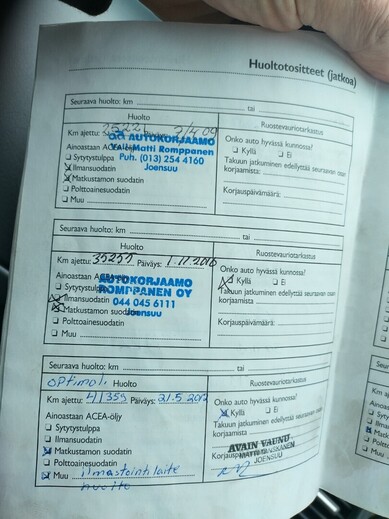 Huoltotositteet (jatkoa)
Seuraava huolto: km tai
Huolto Ruostevauriotarkastus
Km ajettu: Päiväys: 2/4 09
AUTOKORJAAMO
Matti Romppanen
Puh. (013) 254 4160
Joensuu
Ainoastaan ACEA-öljy
Sytytystulppa
Ilmansuodatin
Matkustamon suodatin
Polttoainesuodatin
Muu
Onko auto hyvässä kunnossa?
Kyllä Ei
Takuun jatkuminen edellyttää seuraavan
korjaamista:
Korjauspäivämäärä:
Seuraava huolto: km tai
Huolto Ruostevauriotarkastus
Km ajettu: 35257 Päiväys: 1.11.2010
AUTOKORJAAMO
ROMPPANEN OY
044 045 6111
Joensuu
Ainoastaan
Sytytystulppa
Ilmansuodatin
Matkustamon suodatin
Polttoainesuodatin
Muu
Onko auto hyvässä kunnossa?
Kyllä Ei
Takuun jatkuminen edellyttää seuraavan
korjaamista
Korjauspäivämäärä:
Seuraava huolto: km tai
optimol. Huolto Ruostevauriotarkastus
Km ajettu: 41359 Päiväys: 21.5 2012
Ainoastaan ACEA-öljy
Sytytystulppa
Ilmansuodatin
Matkustamon suodatin
Polttoainesuodatin
Muu ilmastointilaite
huolto
Onko auto hyvässä kunnossa?
Kyllä Ei
Takuun jatkuminen edellyttää seuraavan
korjaamista
AVAIN VAUNU
JOENSUU